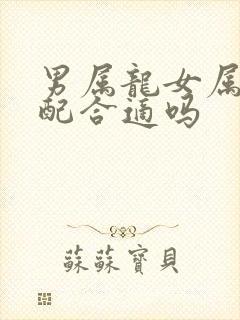 男属龍女属
配合適吗
蘇蘇寶貝